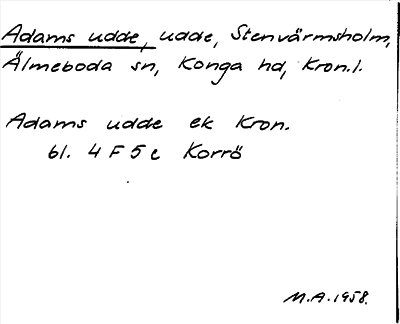 Adams udde, udde, Stenvärmsholm,
Älmeboda sn, Konga hd, Kron.l.
Adams udde ek Kron.
bl. 4 F 5 e Korrö
M.A. 1958.